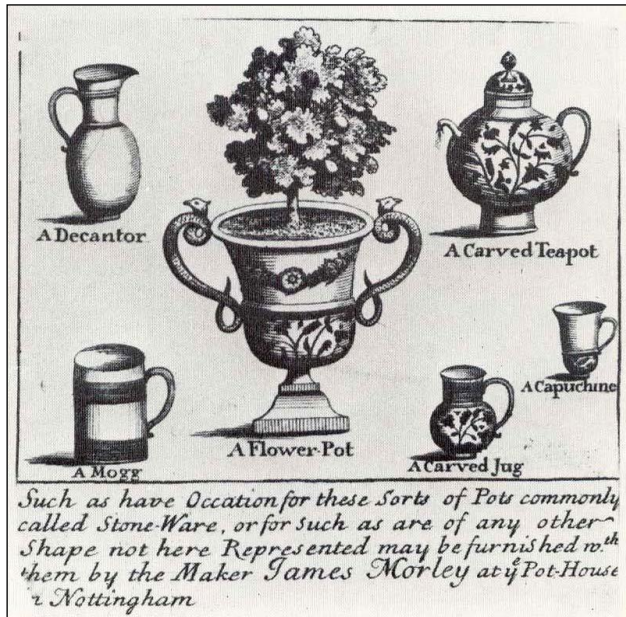 A Decantor
A Carved Teapot
A Capuchine
A Mogg
A Flower-Pot
A Carved Jug
Such as have Occation for these Sorts of Pots commonly
called Stone-Ware, or for such as are of any other
Shape not here Represented may be furnished wth
them by the Maker James Morley at ye Pot-House
Nottingham